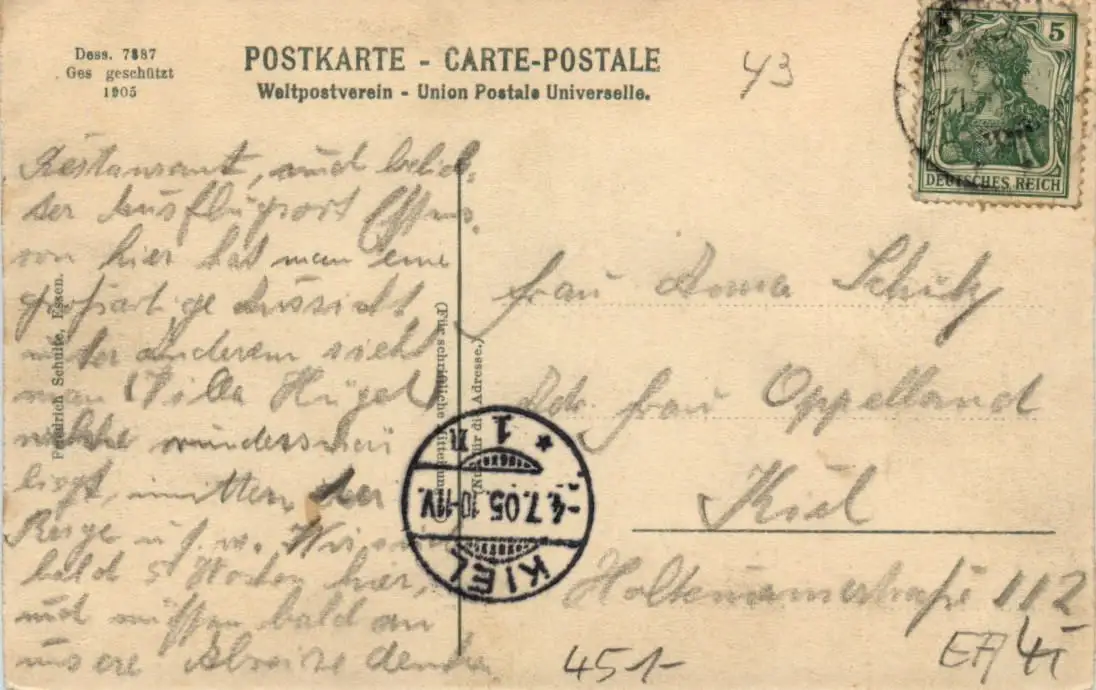 Dess. 7887
Ges geschützt
1905
POSTKARTE - CARTE-POSTALE
Weltpostverein - Union Postale Universelle.
43
5 5
DEUTSCHES REICH
Restaurant, und belieb-
ter Ausflugsort Essens,
von hier hat man eine
großartige Aussicht
unter anderem sieht
man Villa Hügel
welche wunderschön
liegt, inmitten der
Berge u. s. w. Wir sind
bald 5 Wochen hier,
und müssen bald an
unsere Abreise denken
Friedrich Schulte, Essen.
(Für schriftliche Mitteilung)
(Nur für die Adresse.)
KIEL
-4.7.05.10-11V.
1 n
Frau Anna Schütz
Adr. Frau Oppelland
Kiel
Holtenauerstraße 112
451-
EF/